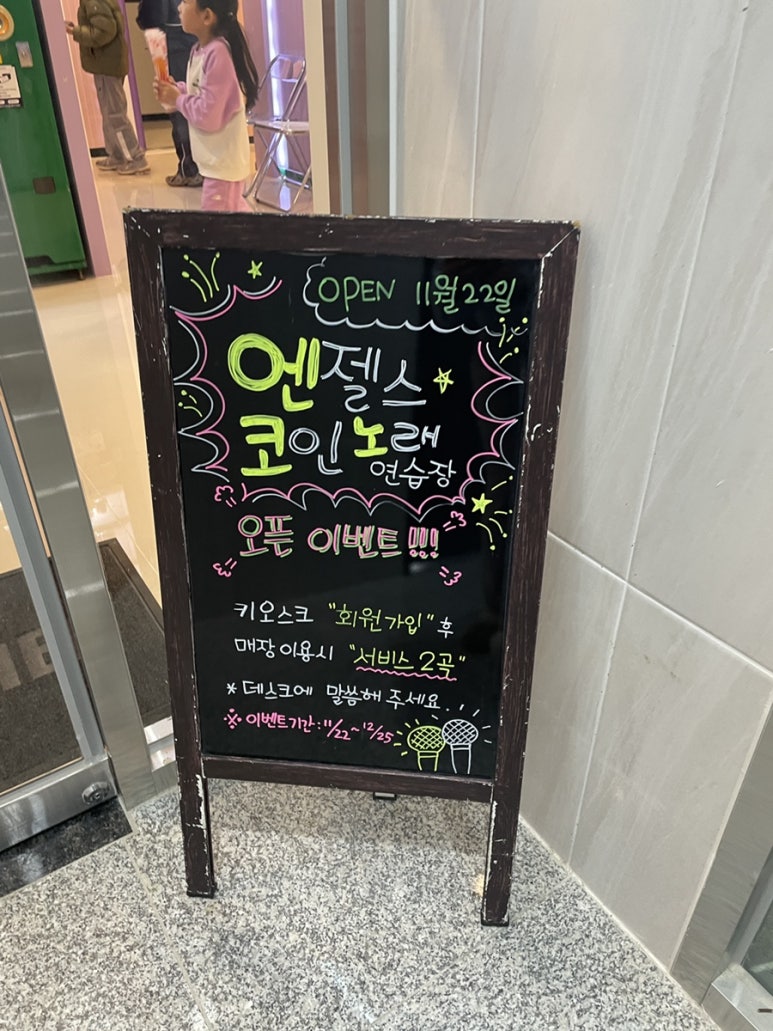 OPEN 11월 22일
엔젤스
코인노래
연습장
오픈 이벤트!!!
키오스크 "회원가입" 후
매장이용시 "서비스 2곡"
* 데스크에 말씀해 주세요.
※ 이벤트기간 : 11/22 ~ 12/25